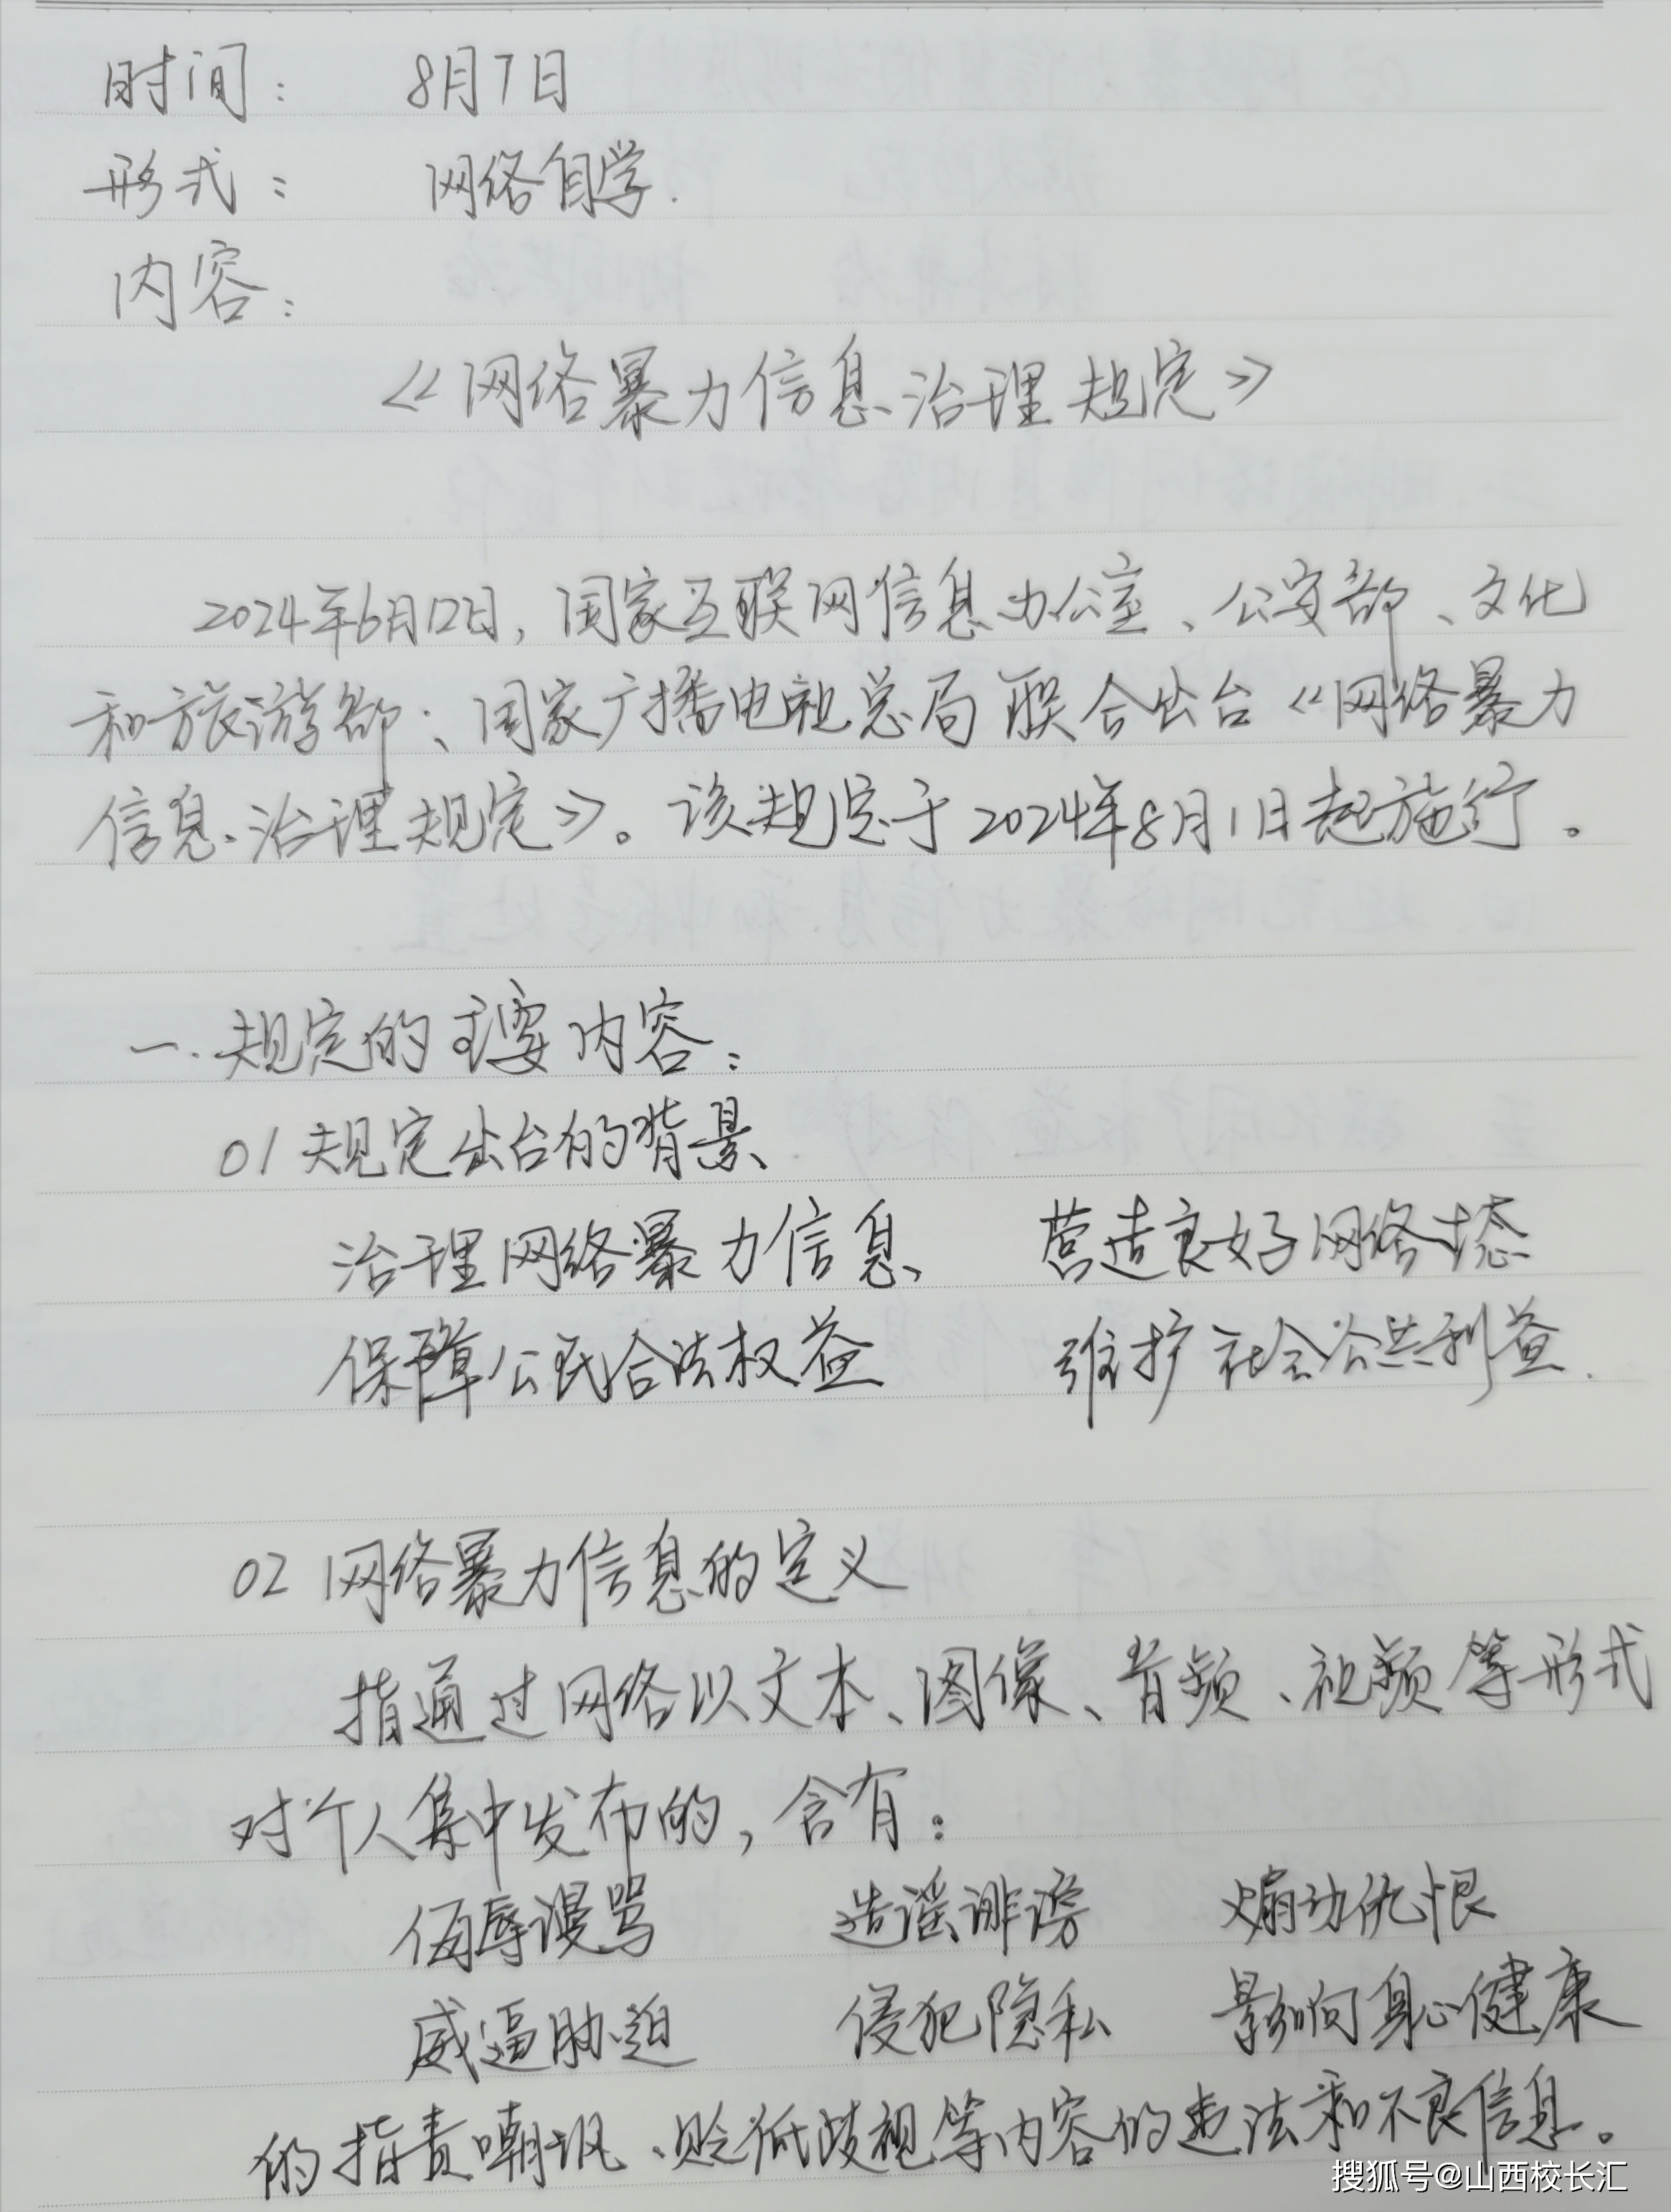 时间： 8月7日
形式： 网络自学.
内容：
《网络暴力信息治理规定》
2024年6月12日，国家互联网信息办公室、公安部、文化
和旅游部、国家广播电视总局联合出台《网络暴力
信息治理规定》。该规定于2024年8月1日起施行。
一.规定的主要内容：
01 规定出台的背景
治理网络暴力信息 营造良好网络生态
保障公民合法权益 维护社会公共利益.
02 网络暴力信息的定义
指通过网络以文本、图像、音频、视频等形式
对个人集中发布的，含有：
侮辱谩骂 造谣诽谤 煽动仇恨
威逼胁迫 侵犯隐私 影响身心健康
的指责嘲讽、贬低歧视等内容的违法和不良信息。
搜狐号@山西校长汇